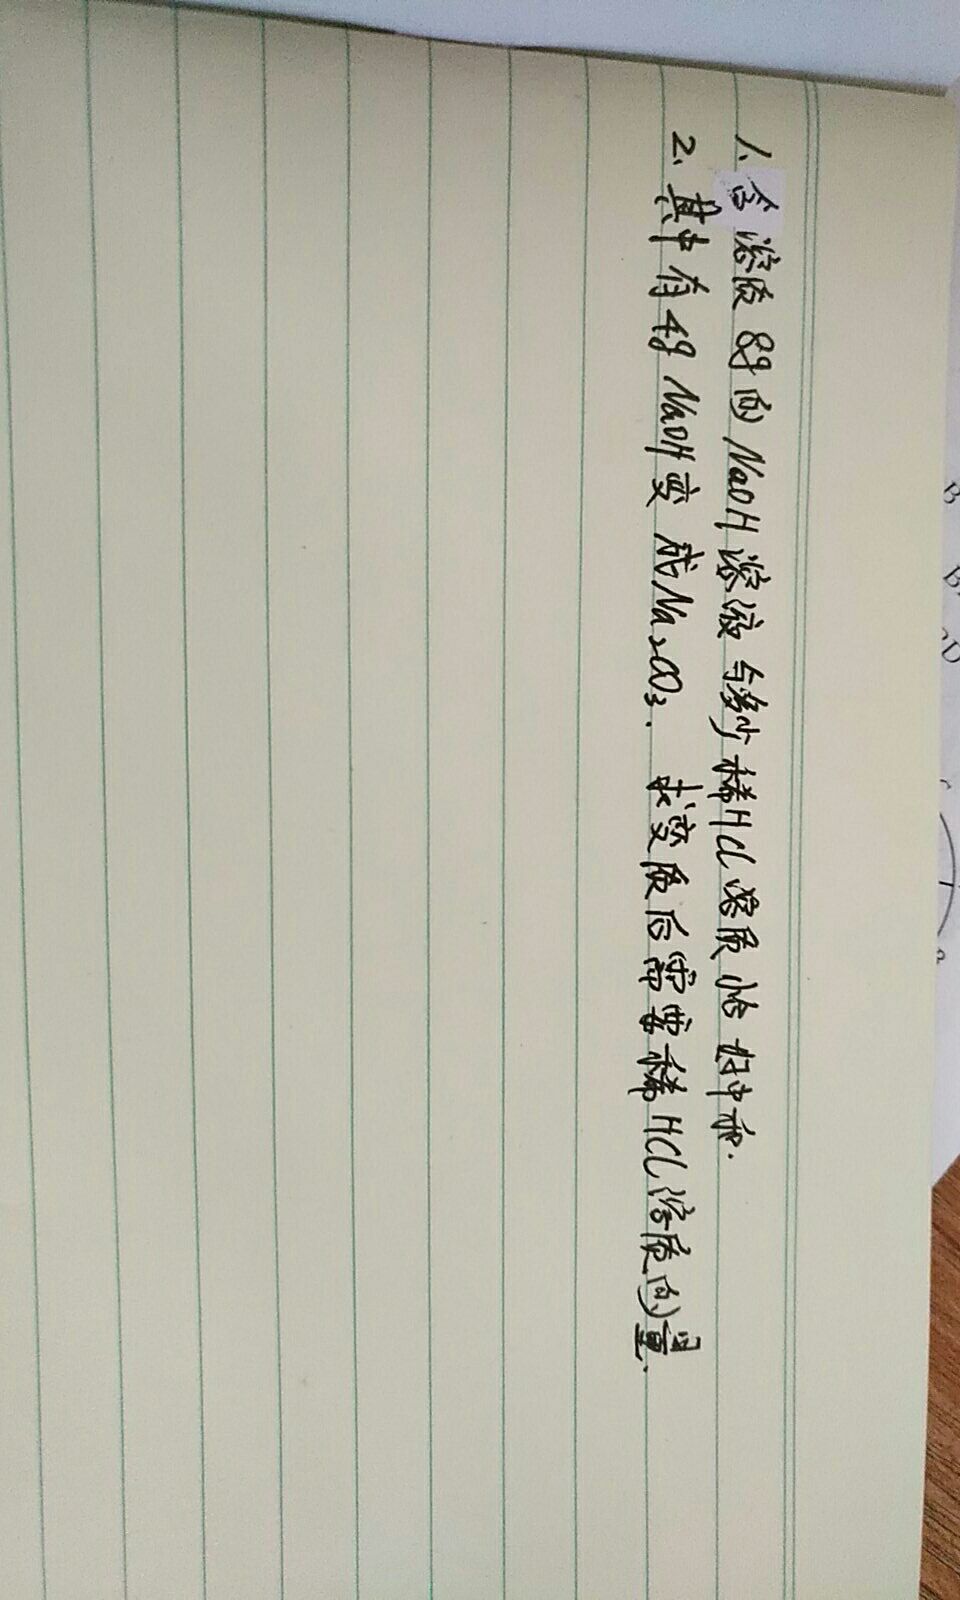 1、含溶质8g的NaOH溶液与多少稀HCl溶质恰好中和.
2、其中有4g NaOH变成Na₂CO₃. 求变质后需要稀HCl溶质的量.
B